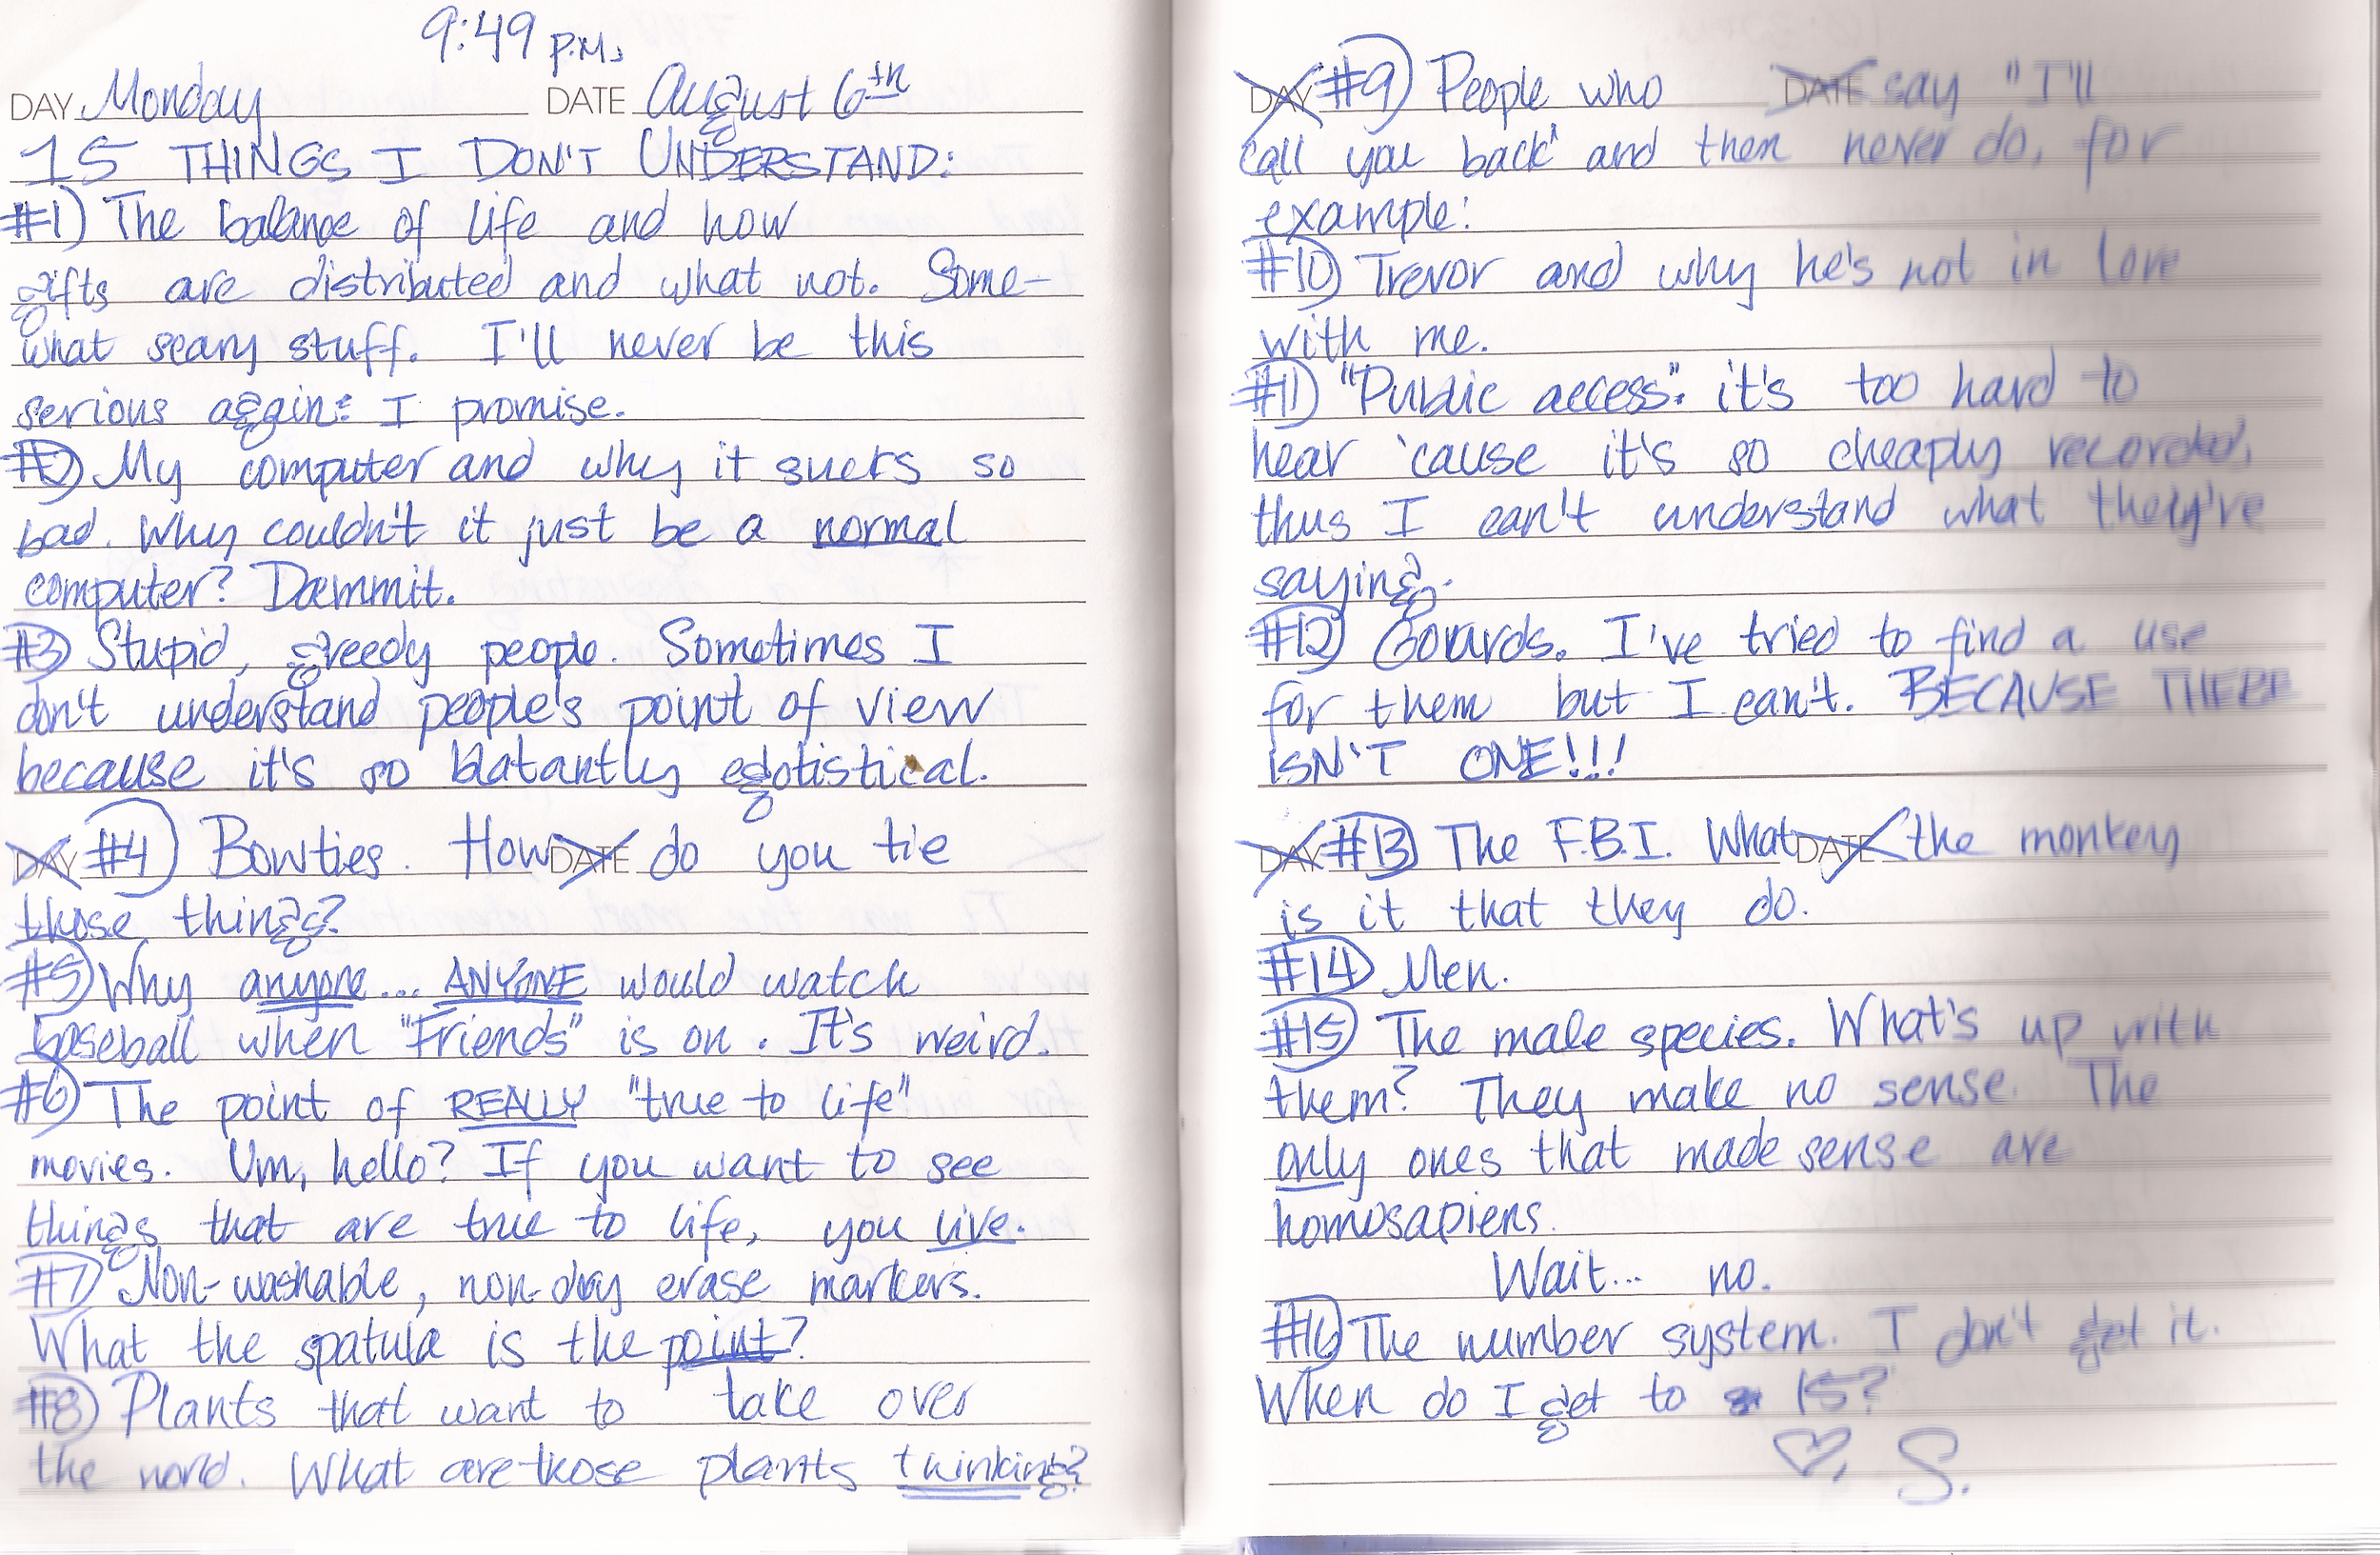 9:49 P.M.
DAY Monday DATE August 6th
15 THINGS I DON'T UNDERSTAND:
#1) The balance of life and how
gifts are distributed and what not. Some-
what scary stuff. I'll never be this
serious again: I promise.
#2) My computer and why it sucks so
bad. Why couldn't it just be a normal
computer? Dammit.
#3) Stupid, greedy people. Sometimes I
don't understand people's point of view
because it's so blatantly egotistical.
DAY #4) Bowties. How DATE do you tie
those things?
#5) Why anyone... ANYONE would watch
baseball when "Friends" is on. It's weird.
#6) The point of REALLY "true to life"
movies. Um, hello? If you want to see
things that are true to life, you live.
#7) Non-washable, non-dry erase markers.
What the spatula is the point?
#8) Plants that want to take over
the world. What are those plants thinking?
DAY #9) People who DATE say "I'll
call you back" and then never do, for
example:
#10) Trevor and why he's not in love
with me.
#11) "Public access": it's too hard to
hear 'cause it's so cheaply recorded,
thus I can't understand what they've
saying.
#12) Gourds. I've tried to find a use
for them but I can't. BECAUSE THERE
ISN'T ONE!!!
DAY #13) The F.B.I. What DATE the monkey
is it that they do.
#14) Men.
#15) The male species. What's up with
them? They make no sense. The
only ones that made sense are
homosapiens.
Wait... no.
#16) The number system. I don't get it.
When do I get to 15?
♡, S.